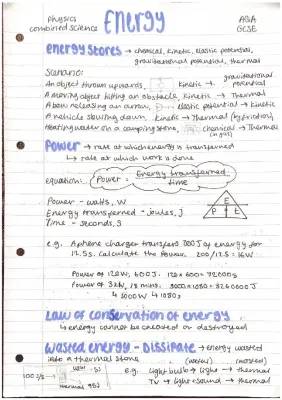 Physics
combined science
Energy
AQA
GCSE
energy stores → chemical, kinetic, elastic potential,
gravitational potential, thermal
Scenario:
An object thrown upwards, kinetic → gravitational potential
A moving object hitting an obstacle, kinetic → Thermal
A bow releasing an arrow, elastic potential → kinetic
A vehicle slowing down, kinetic → Thermal (by friction)
Heating water on a camping stove, chemical (in gas) → Thermal
Power → rate at which energy is transferred
↳ rate at which work is done
equation: Power = Energy transferred
time
Power - watts, W
Energy transferred - joules, J
Time - seconds, S
E
P t
e.g. A phone charger transfers 200J of energy for
12.5s. Calculate the power. 200/12.5 = 16W
Law of conservation of energy
↳ energy cannot be created or destroyed
Wasted energy - Dissipate → energy wasted
to a thermal store
(useful) (wasted)
e.g. light bulb → light → thermal
TV → light + sound → thermal
100 J/s
thermal 95J